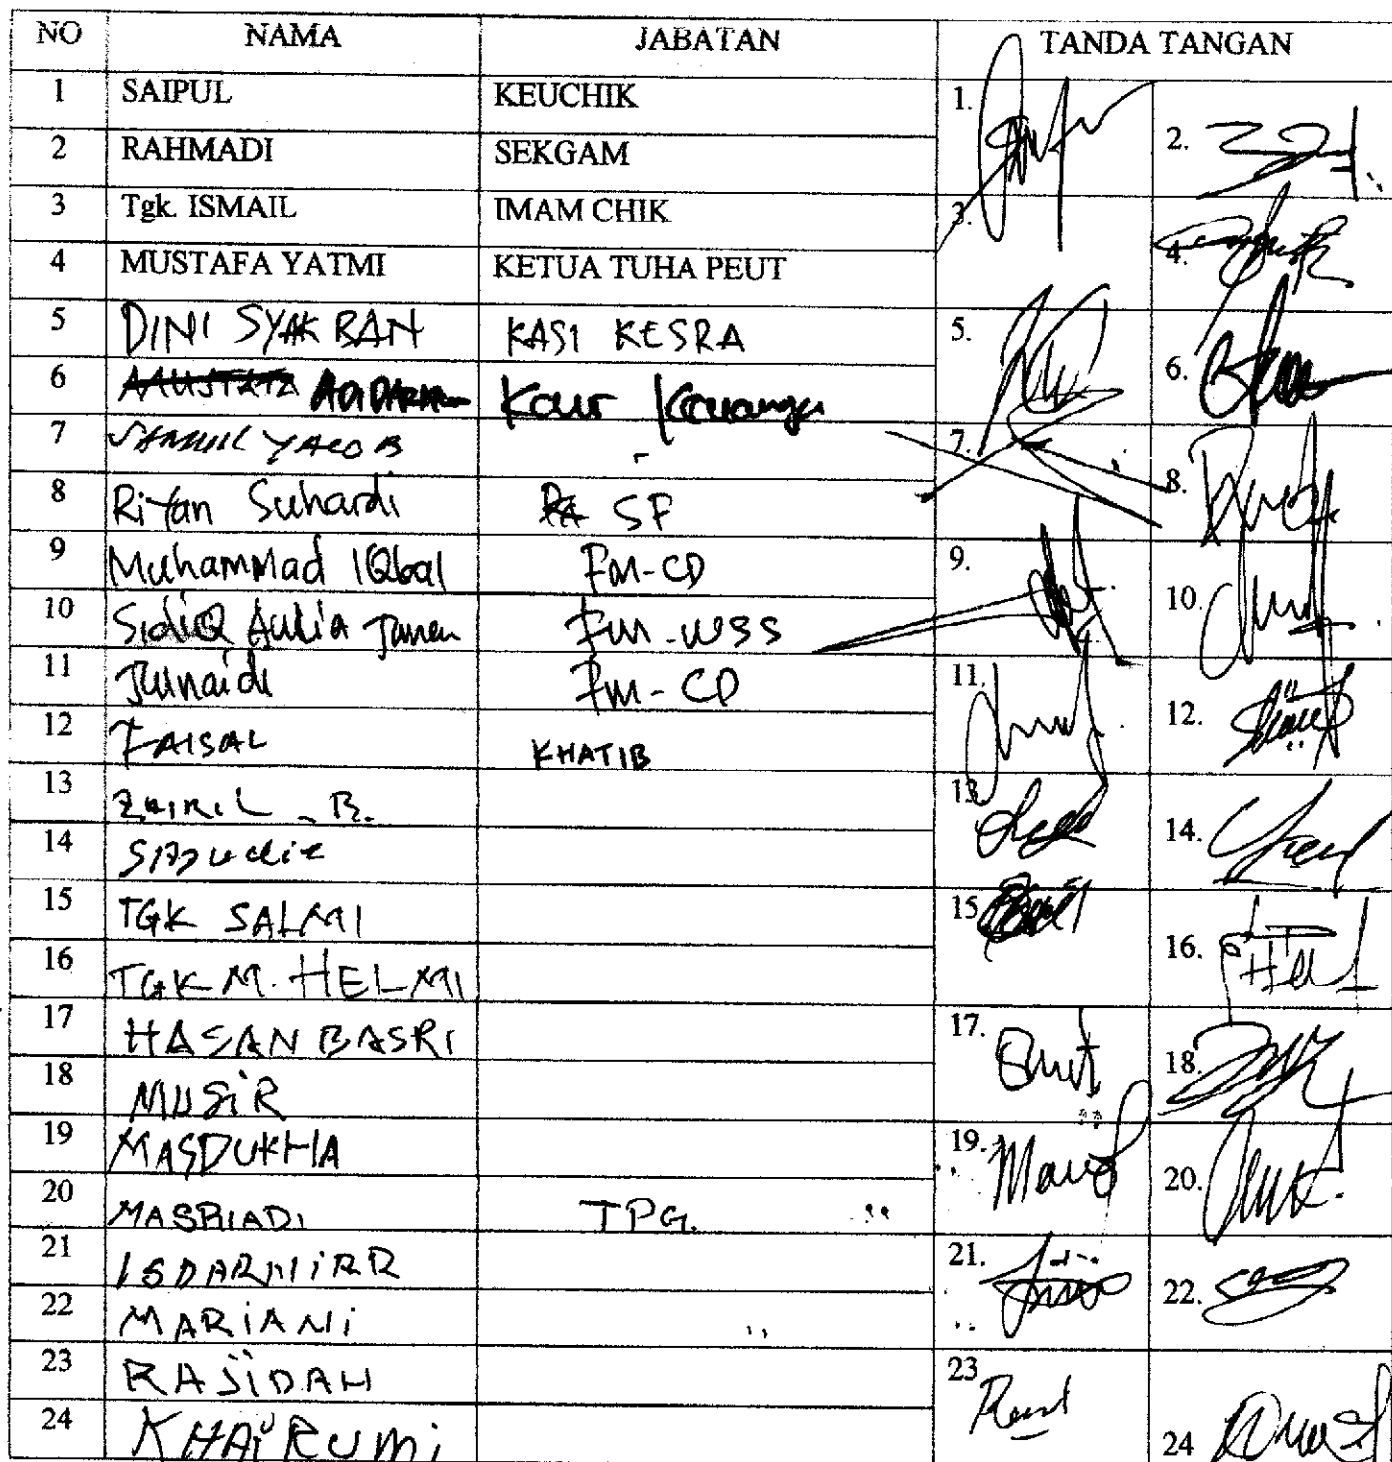 NO NAMA JABATAN TANDA TANGAN
1 SAIPUL KEUCHIK 1.
2 RAHMADI SEKGAM 2.
3 Tgk. ISMAIL IMAM CHIK 3.
4 MUSTAFA YATMI KETUA TUHA PEUT 4.
5 DINI SYAKRAN KASI KESRA 5.
6 Kaur 6.
7 YACOB 7.
8 Riyan Suhardi SF 8.
9 Muhammad IQbal FM-CD 9.
10 SidiQ Aulia FM-WSS 10.
11 Junaidi FM-CD 11.
12 FAISAL KHATIB 12.
13 ZAIRIL B. 13
14 14.
15 TGK SALMI 15
16 TGK M. HELMI 16.
17 HASAN BASRI 17.
18 MUSIR 18.
19 MASDUKHA 19.
20 MASRIADI TPG. 20.
21 21.
22 MARIANI 22.
23 RAJIDAH 23
24 KHAIRUMI 24